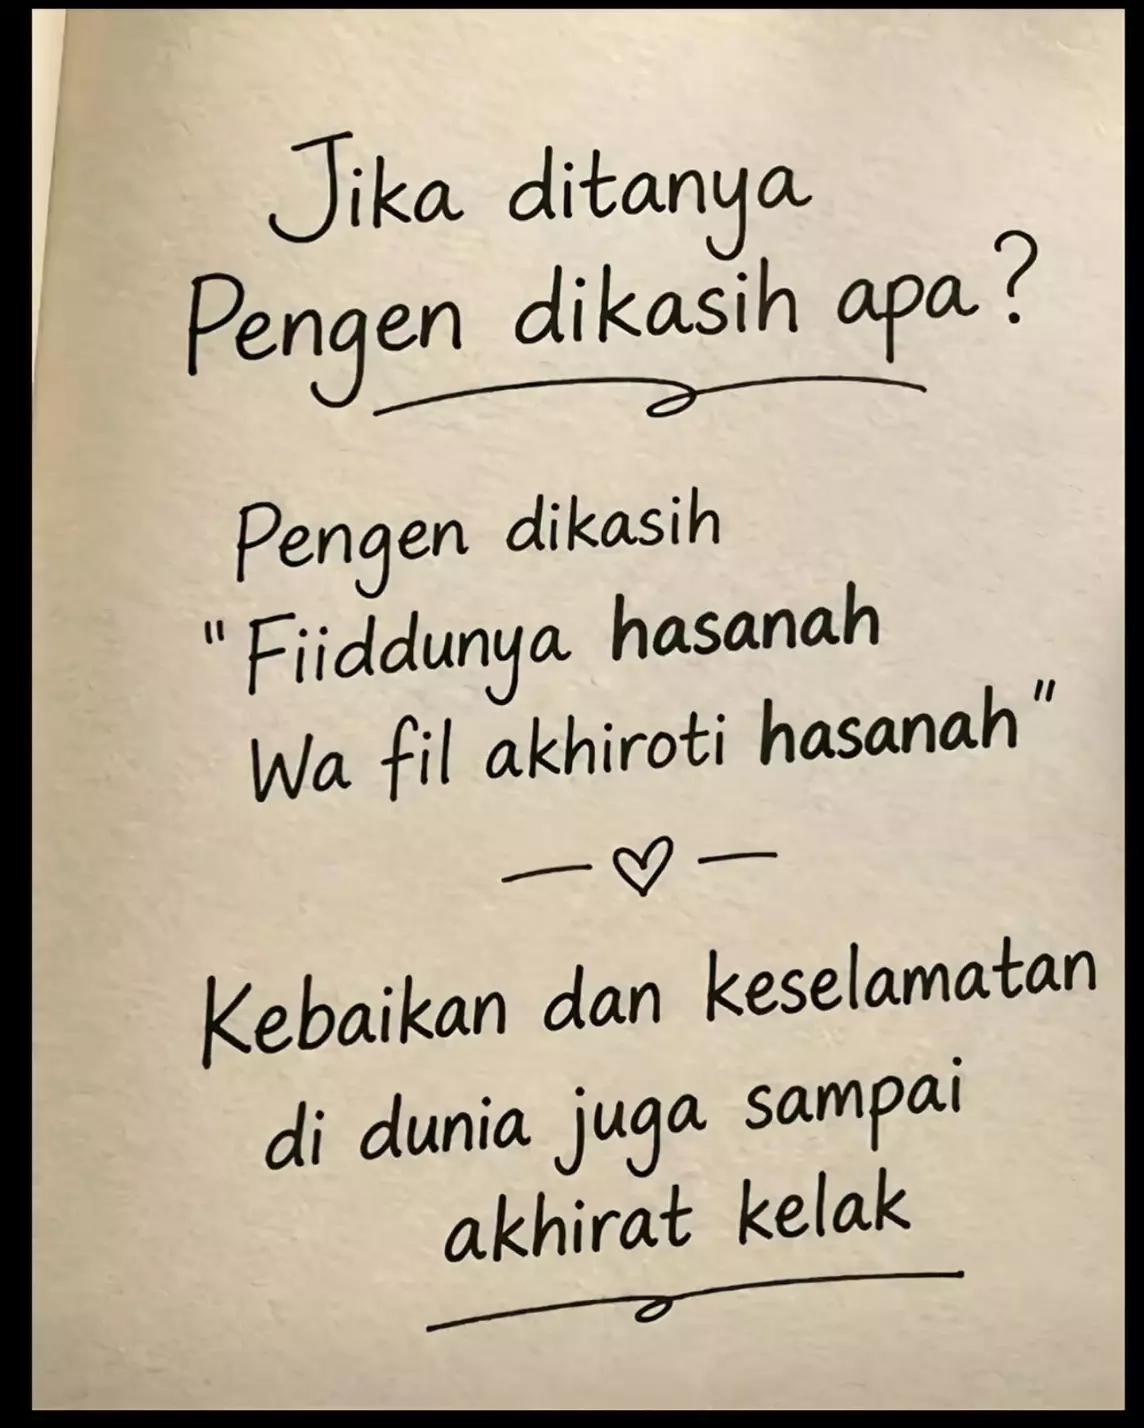 Jika ditanya
Pengen dikasih apa?
Pengen dikasih
"Fiiddunya hasanah
Wa fil akhiroti hasanah"
Kebaikan dan keselamatan
di dunia juga sampai
akhirat kelak